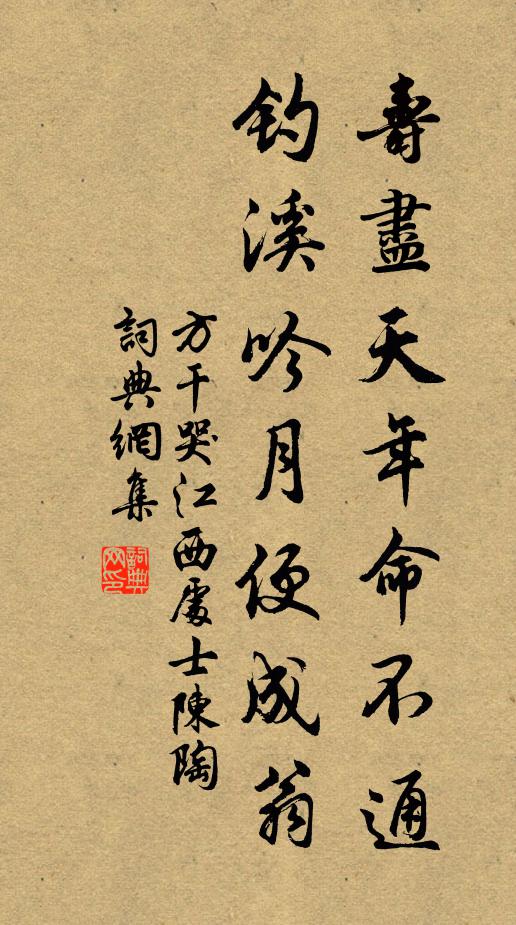 壽盡天年命不通
釣溪吟月便成翁
方干哭江西處士陳陶
詞典網集
詞典
网印